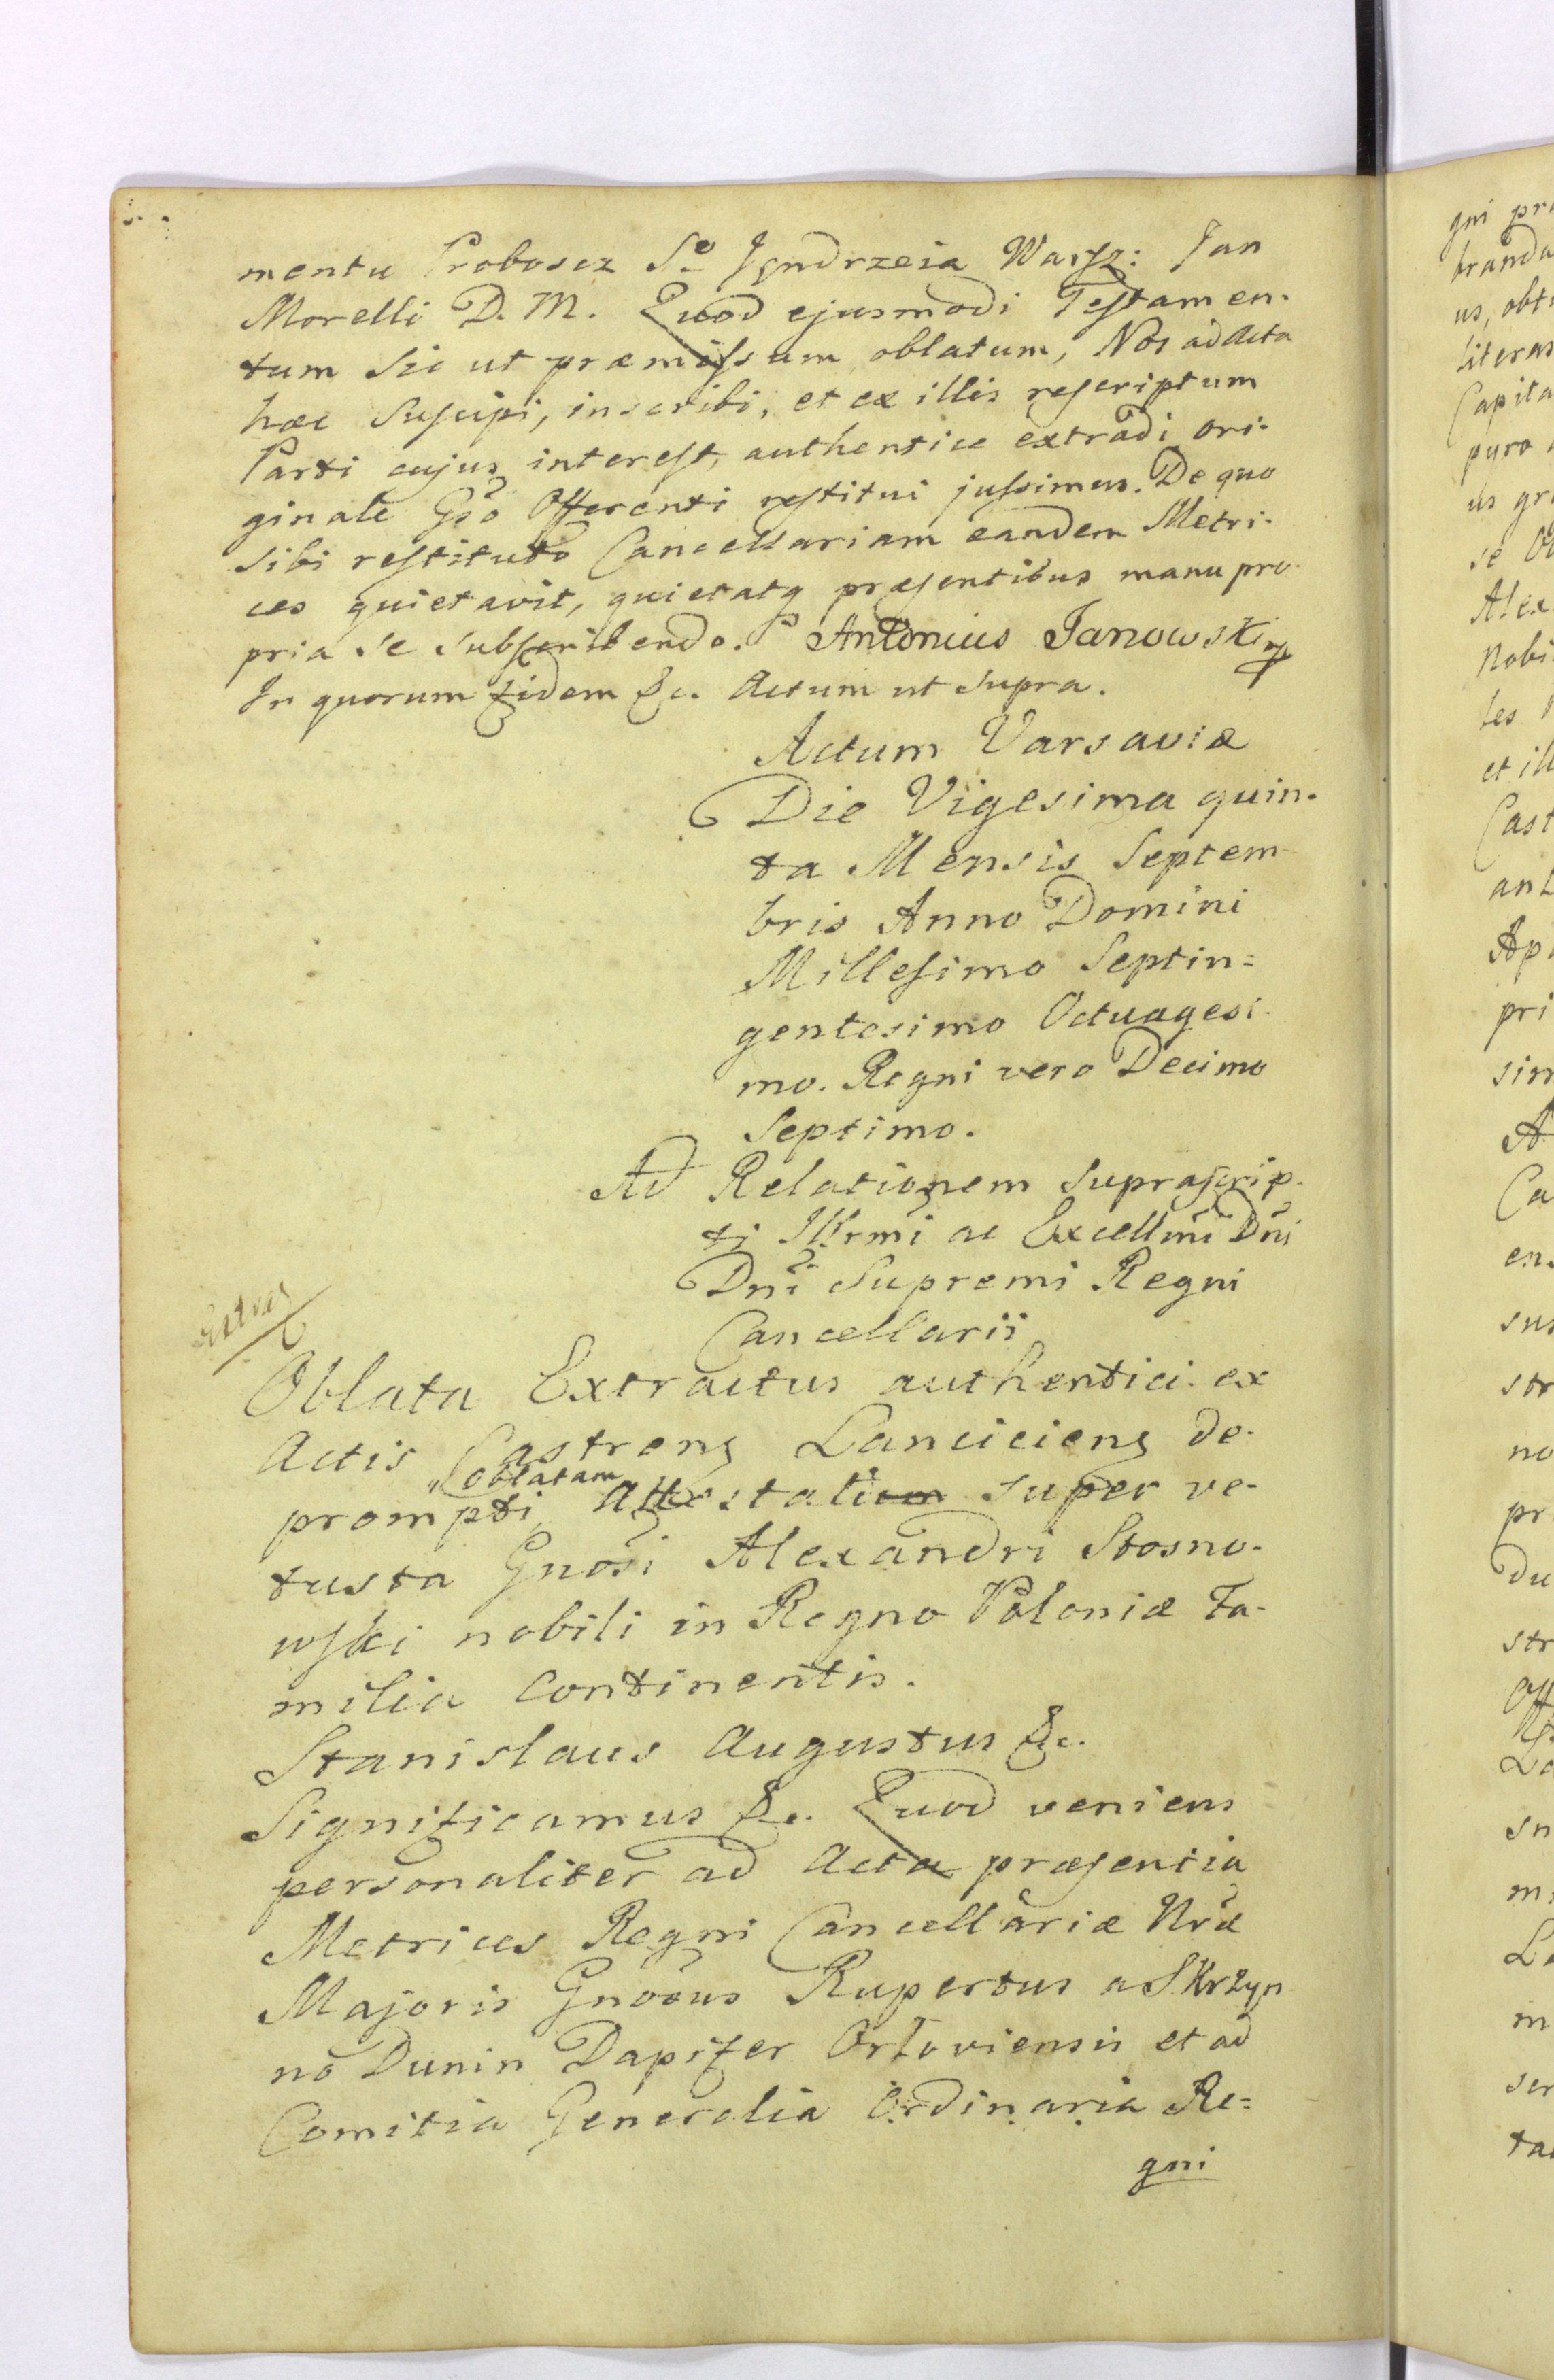 mentu Proboscz S<sup>o</sup> Jendrzeia Warsz: Jan
Morelli D. M. Quod ejusmodi Testamen-
tum sic ut præmissum oblatum, Nos ad Acta
hæc suscipi, inscribi, et ex illis rescriptum
Parti cujus interest, authentice extradi ori-
ginale Gso Offerenti restitui jussimus. De quo
sibi restituto Cancellariam eandem Metri-
ces quietavit, quietatq præsentibus manu pro-
pria se subscribendo. Antonius Janowski mp
In quorum fidem &c. Actum ut supra.
Actum Varsaviæ
Die Vigesima quin-
ta Mensis Septem-
bris Anno Domini
Millesimo Septin=
gentesimo Octuagesi-
mo. Regni vero Decimo
Septimo.
Ad Relationem suprascrip-
ti Illrmi ac Excellmi Dni
Dni Supremi Regni
Cancellarii
Oblata Extractus authentici ex
Actis Castrens Lanciciens de-
oblatam
prompti, Attestatium super ve-
tusta Gnosi Alexandri Stosno-
wski nobili in Regno Poloniæ Fa-
milia continentis.
Stanislaus Augustus &c.
Significamus &c. Quod veniens
personaliter ad Acta præsentia
Metrices Regni Cancellariæ Nræ
Majoris Gnosus Rupertus a Skrzyn
no Dunin Dapifer Orloviensis et ad
Comitia Generalia Ordinaria Re=
gni
gni
branda
us, obt
literas
Capita
puro
us
se
Alex
Nobi
les
et ill
Cast
ant
Ap
pri
sim
A
Ca
en
sus
str
no
pr
du
str
Off
La
sn
m
La
m
ser
ta